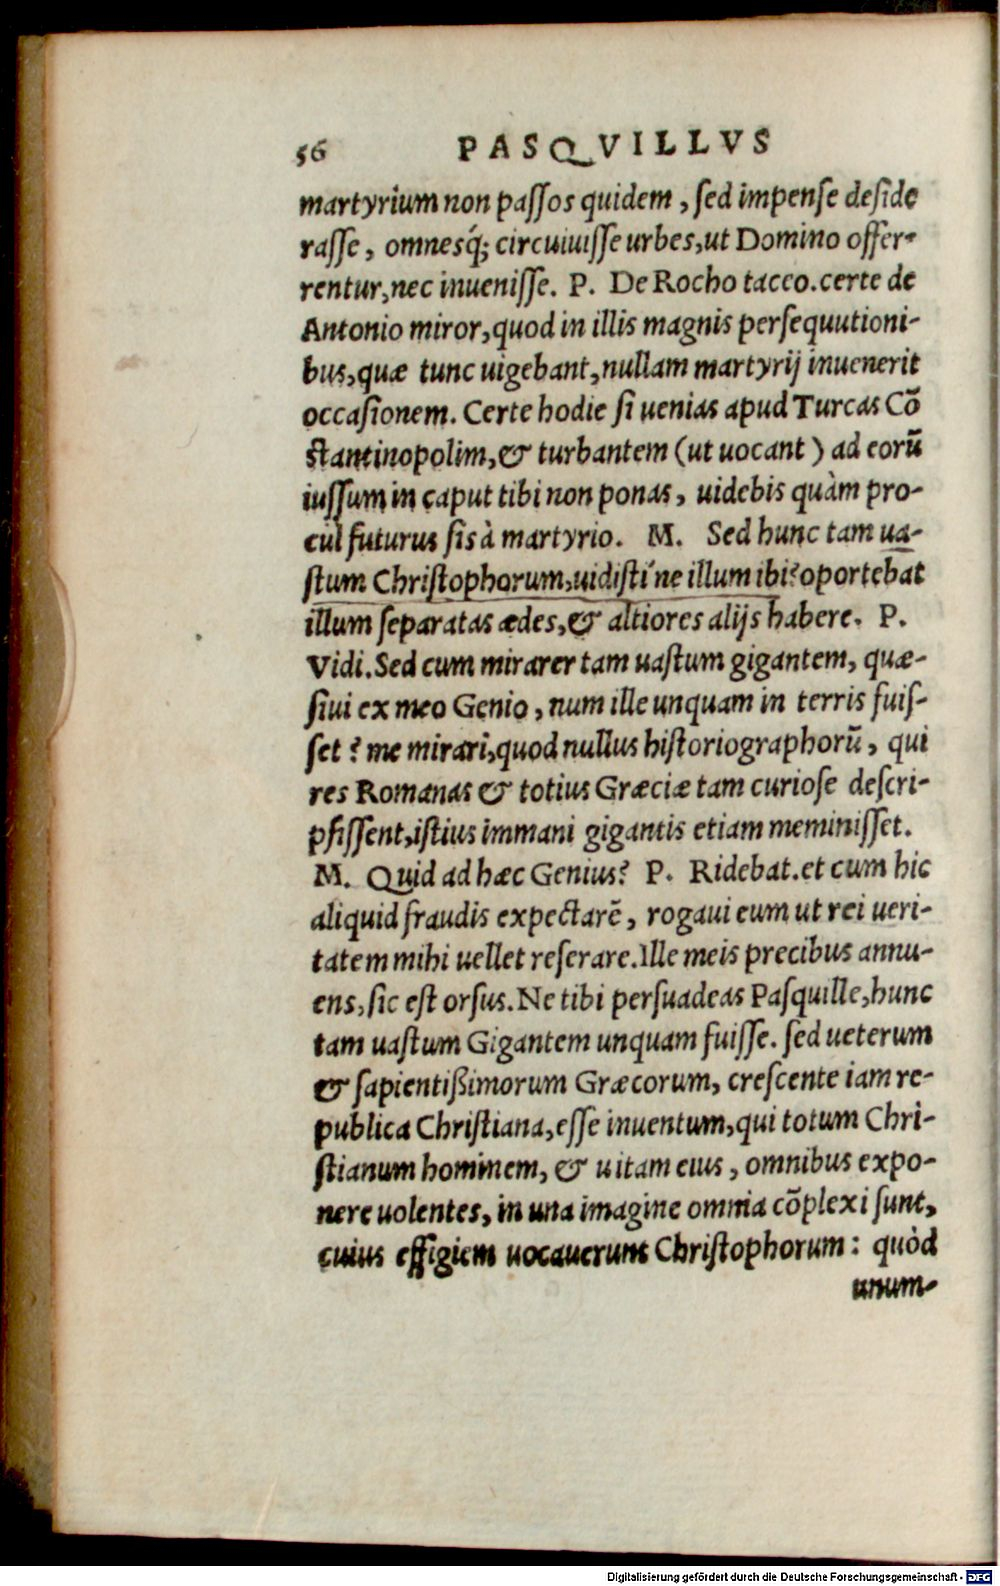 56 PASQVILLVS
martyrium non paſſos quidem, ſed impenſe deſide
raſſe, omnesq́; circuiuiſſe urbes, ut Domino offer-
rentur, nec inueniſſe. P. De Rocho taceo. certe de
Antonio miror, quod in illis magnis perſequutioni-
bus, quæ tunc uigebant, nullam martyrij inuenerit
occaſionem. Certe hodie ſi uenias apud Turcas Cõ
ſtantinopolim, & turbantem (ut uocant) ad eorũ
iuſſum in caput tibi non ponas, uidebis quàm pro-
cul futurus ſis à martyrio. M. Sed hunc tam ua-
ſtum Chriſtophorum, uidiſti'ne illum ibi? oportebat
illum ſeparatas ædes, & altiores alijs habere. P.
Vidi. Sed cum mirarer tam uaſtum gigantem, quæ-
ſiui ex meo Genio, num ille unquam in terris fuiſ-
ſet? me mirari, quod nullus hiſtoriographorũ, qui
res Romanas & totius Græciæ tam curioſe deſcri-
pſiſſent, iſtius immani gigantis etiam meminiſſet.
M. Quid ad hæc Genius? P. Ridebat. et cum hic
aliquid fraudis expectarẽ, rogaui eum ut rei ueri-
tatem mihi uellet reſerare. Ille meis precibus annu-
ens, ſic eſt orſus. Ne tibi perſuadeas Paſquille, hunc
tam uaſtum Gigantem unquam fuiſſe. ſed ueterum
& ſapientißimorum Græcorum, creſcente iam re-
publica Chriſtiana, eſſe inuentum, qui totum Chri-
ſtianum hominem, & uitam eius, omnibus expo-
nere uolentes, in una imagine omnia cõplexi ſunt,
cuius effigiem uocauerunt Chriſtophorum: quòd
unum-
Digitalisierung gefördert durch die Deutsche Forschungsgemeinschaft - DFG